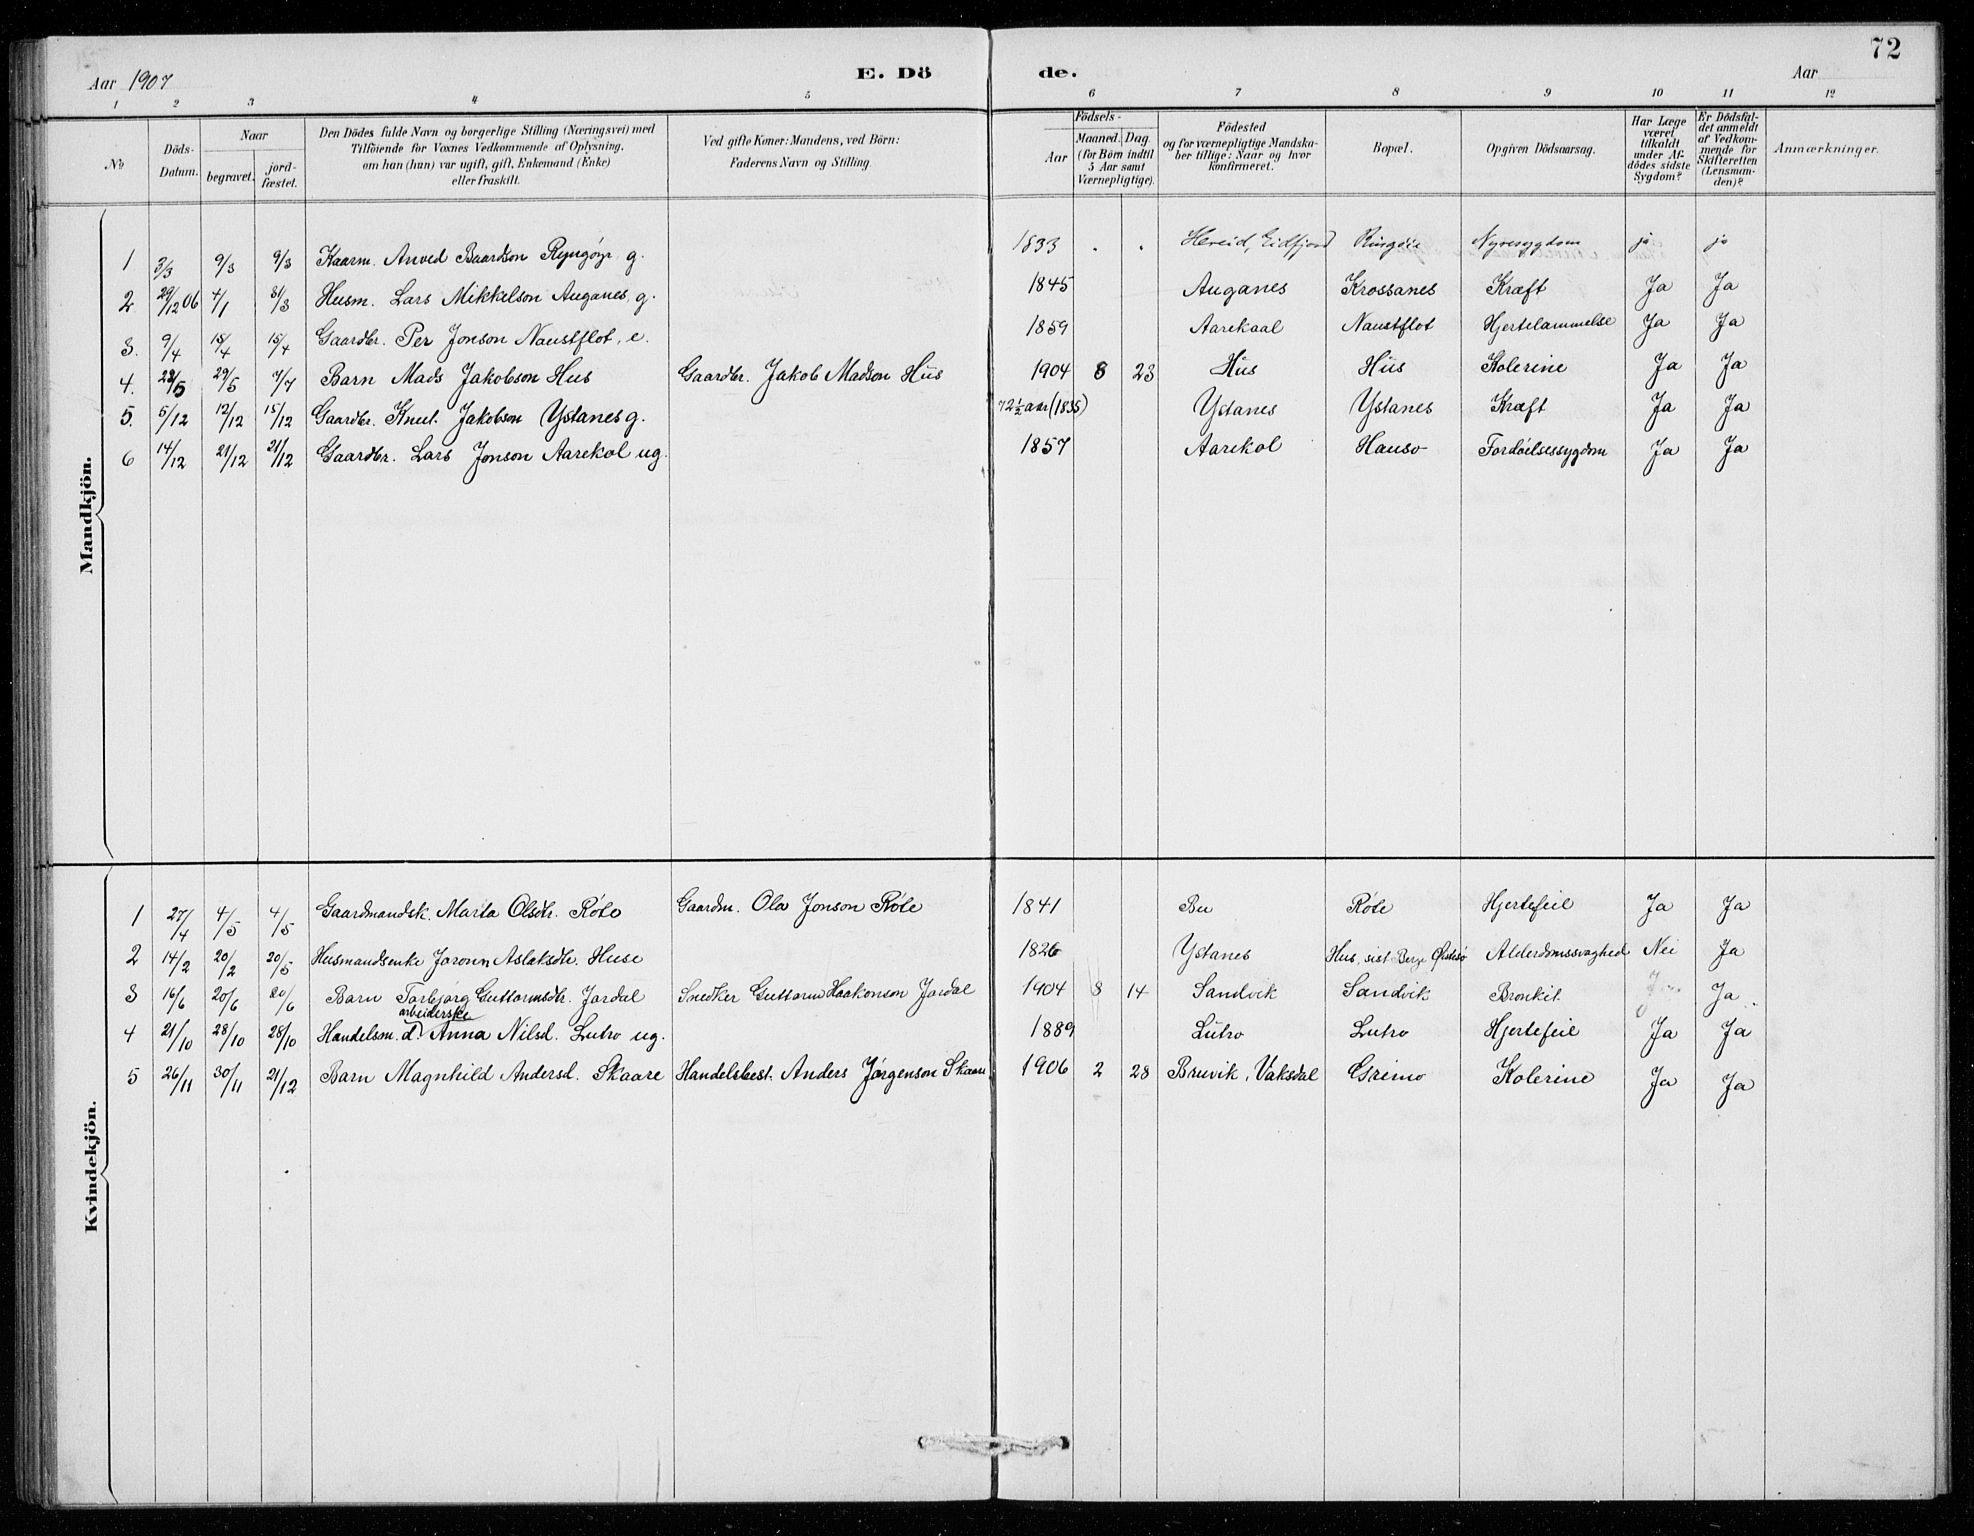 72
Aar 1907 E. Dö de. Aar
1 2 3 4 5 6 7 8 9 10 11 12
№
Döds-
Datum.
Naar
begravet.
jord-
fæstet.
Den Dödes fulde Navn og borgerlige Stilling (Næringsvei) med
Tilföiende for Voxnes Vedkommende af Oplysning,
om han (hun) var ugift, gift, Enkemand (Enke)
eller fraskilt.
Ved gifte Koner: Mandens, ved Börn:
Faderens Navn og Stilling.
Födsels-
Aar
Maaned. Dag.
(for Börn indtil
5 Aar samt
Værnepligtige).
Födested
og for værnepligtige Mandska-
ber tillige: Naar og hvor
konfirmeret.
Bopæl.
Opgiven Dödsaarsag.
Har Læge
været
tilkaldt
under Af-
dödes sidste
Sygdom?
Er Dödsfal-
det anmeldt
af Vedkom-
mende for
Skifteretten
(Lensman-
den)?
Anmærkninger.
Mandkjön.
1 3/3 9/3 9/3 Kaarm. Anved Baardson Ryngöyr g. 1833 . . Hereid, Eidfjord Ringöie Nyresygdom ja ja
2 29/12 06 4/1 31/3 Husm. Lars Mikkelson Auganes, g. 1845 Auganes Krossanes Kræft Ja Ja
3. 9/4 15/4 15/4 Gaardbr. Per Jonson Naustflot, e. 1859 Aarekaal Naustflot Hjertelammelse Ja Ja
4. 22/5 29/5 7/7 Barn Mads Jakobson Hus Gaardbr. Jakob Madson Hus 1904 8 23 Hus Hus Kolerine Ja Ja
5. 5/12 12/12 15/12 Gaardbr. Knut Jakobson Ystanes g. 72½ aar (1835) Ystanes Ystanes Kræft Ja Ja
6 14/12 21/12 21/12 Gaardbr. Lars Jonson Aarekol ug. 1857 Aarekol Hauso Fordöielsessygdom Ja Ja
Kvindekjön.
1 27/4 4/5 4/5 Gaardmandsk. Marta Olsdtr. Röte Gaardm. Ola Jonson Röte 1841 Bu Röte Hjertefeil Ja Ja
2 14/2 20/2 20/5 Husmandsenke Joronn Aslaksdtr. Huse 1826 Ystanes Hus, sist Berge Östesö Alderdomssvaghed Nei Ja
3 16/6 20/6 20/6 Barn Torbjörg Guttormsdtr. Jordal Snedker Guttorm Haakonson Jordal 1904 8 14 Sandvik Sandvik Bronkit Ja
arbeiderske
4 21/10 28/10 28/10 Handelsm. d. Anna Nilsd. Lutro ug. 1889 Lutro Lutro Hjertefeil Ja Ja
5 26/11 30/11 21/12 Barn Magnhild Andersd. Skaare Handelsbest. Anders Jörgenson Skaare 1906 2 28 Bruvik, Vaksdal Grimo Kolerine Ja Ja